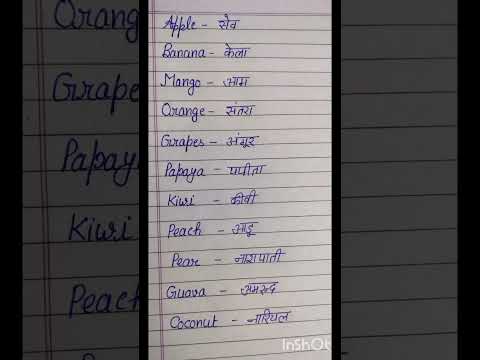 Apple - सेव
Banana - केला
Mango - आम
Orange - संतरा
Grapes - अंगूर
Papaya - पपीता
Kiwi - कीवी
Peach - आडू
Pear - नाशपाती
Guava - अमरुद
Coconut - नारियल
Orange
Grapes
Papaya
Kiwi
Peach
InShOt